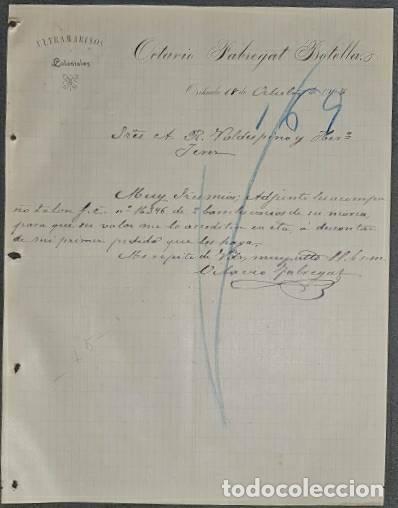 ULTRAMARINOS
Coloniales
Octavio Fabregat Botella
18 de Octubre
169
Sres A. R. Valdespino y Herº
Jerez
Muy Sres mios: Adjunto les acompa
ño talon f.c. nº 16346 de 2 barriles vacios de su marca,
para que su valor me lo acrediten en cta, a descontar
de mi primer pedido que les haga.
Me repito de Vds, muy atto S.S.
Octavio Fabregat
todocoleccion.net